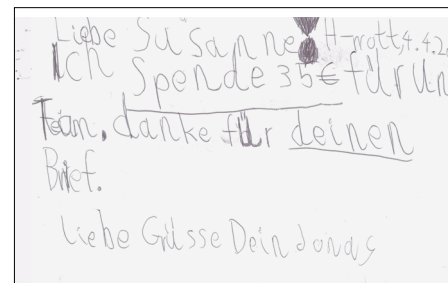 Liebe Susanne! H-rott, 4.4.2
Ich Spende 35€ für un
Team. danke für deinen
Brief.
Liebe Grüsse Dein Jonas